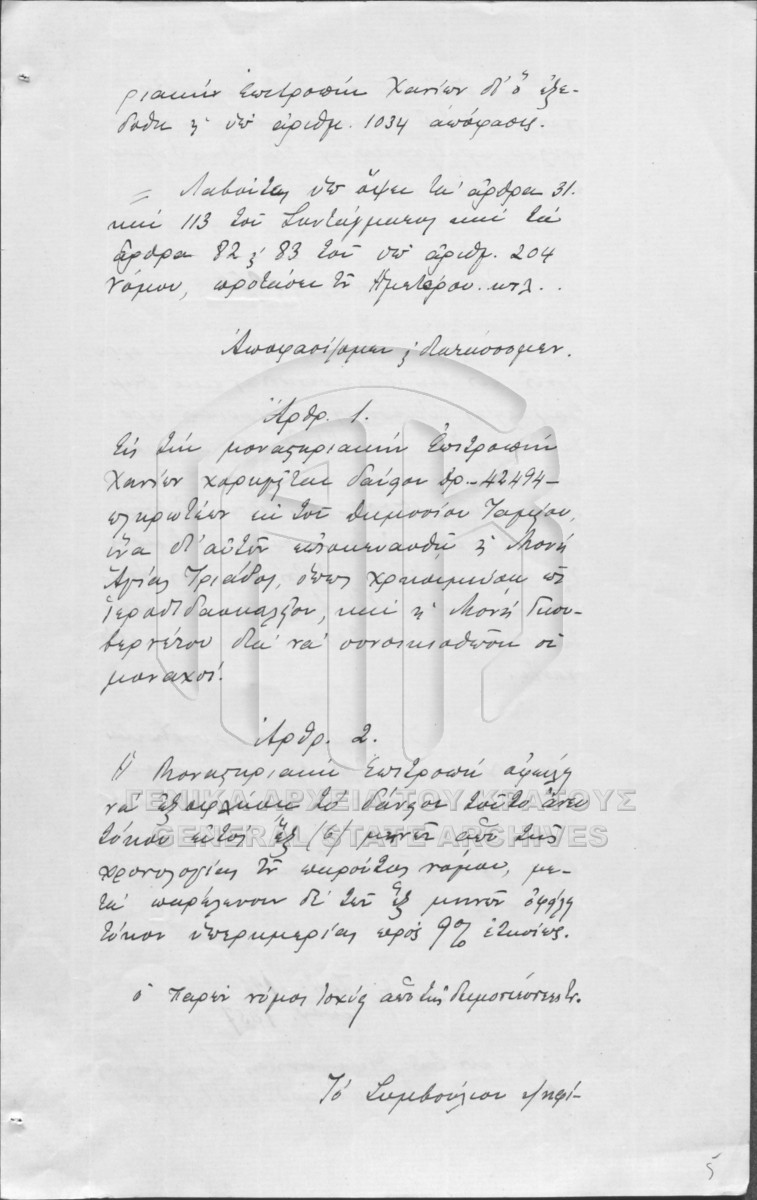 ριακὴν Ἐπιτροπὴν Χανίων δι' ὃ ἐξε-
δόθη ἡ ὑπ' ἀριθμ. 1034 ἀπόφασις.
= Λαβόντες ὑπ' ὄψει τὰ ἄρθρα 31.
καὶ 113 τοῦ Συντάγματος καὶ τὰ
ἄρθρα 82 ἢ 83 τοῦ ὑπ' ἀριθμ. 204
νόμου, προτάσει τοῦ Ἡμετέρου. κτλ. .
Ἀποφασίζομεν ἢ διατάσσομεν.
Ἄρθρ. 1.
Εἰς τὴν μοναστηριακὴν Ἐπιτροπὴν
Χανίων χορηγεῖται δάνειον δρ. – 42494 –
πληρωτέον ἐκ τοῦ Δημοσίου Ταμείου,
ἵνα δι' αὐτῶν ἐπισκευασθῇ ἡ Μονὴ
Ἁγίας Τριάδος, ὅπως χρησιμεύσῃ ὡς
Ἱεροδιδασκαλεῖον, καὶ ἡ Μονὴ Γκου-
βερνέτου διὰ νὰ συνοικισθῶσιν οἱ
μοναχοί.
Ἄρθρ. 2.
Ἡ Μοναστηριακὴ Ἐπιτροπὴ ὀφείλει
νὰ ἐξοφλήσῃ τὸ δάνειον τοῦτο ἄνευ
ΓΕΝΙΚΑ ΑΡΧΕΙΑ ΤΟΥ ΚΡΑΤΟΥΣ
τόκου ἐντὸς ἓξ (6) μηνῶν ἀπὸ τῆς
GENERAL STATE ARCHIVES
χρονολογίας τοῦ παρόντος νόμου, με-
τὰ παρέλευσιν δὲ τῶν ἓξ μηνῶν ὀφείλει
τόκον ὑπερημερίας πρὸς 9% ἐτησίως.
Ὁ Παρὼν νόμος ἰσχύει ἀπὸ τῆς δημοσιεύσεως
Τὸ Συμβούλιον ψηφί-
5